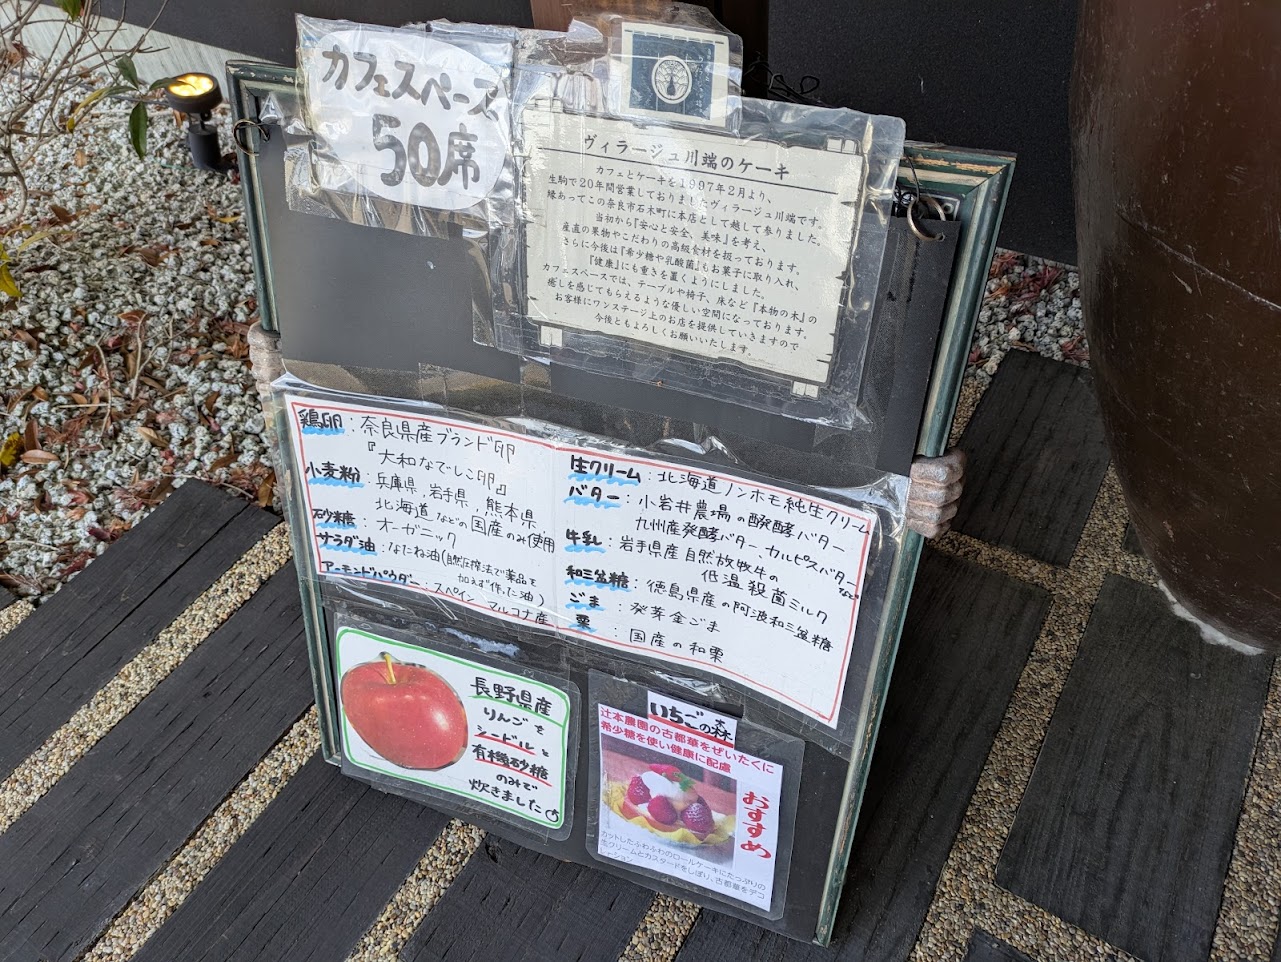 カフェスペース
50席
ヴィラージュ川端のケーキ
カフェとケーキを1997年2月より、
生駒で20年間営業しておりましたヴィラージュ川端です。
縁あってこの奈良市石木町に本店として越して参りました。
当初から『安心と安全、美味』を考え、
産直の果物やこだわりの高級食材を扱っております。
さらに今後は『希少糖や乳酸菌』もお菓子に取り入れ、
『健康』にも重きを置くようにしました。
カフェスペースでは、テーブルや椅子、床など『本物の木』の
癒しを感じてもらえるような優しい空間になっております。
お客様にワンステージ上のお店を提供していきますので
今後ともよろしくお願いいたします。
鶏卵：奈良県産ブランド卵
『大和なでしこ卵』
小麦粉：兵庫県,岩手県,熊本県
北海道などの国産のみ使用
砂糖：オーガニック
サラダ油：なたね油(自然圧搾法で薬品を
加えず作った油)
アーモンドパウダー：スペイン マルコナ産
生クリーム：北海道ノンホモ純生クリーム
バター：小岩井農場の醗酵バター
九州産発酵バター,カルピスバターなど
牛乳：岩手県産自然放牧牛の
低温殺菌ミルク
和三盆糖：徳島県産の阿波和三盆糖
ごま：発芽金ごま
栗：国産の和栗
長野県産
りんごを
シードルと
有機砂糖
のみで
炊きました
いちごの森
辻本農園の古都華をぜいたくに
希少糖を使い健康に配慮
おすすめ
カットしたふわふわのロールケーキにたっぷりの
生クリームとカスタードをしぼり、古都華をデコ
レーション